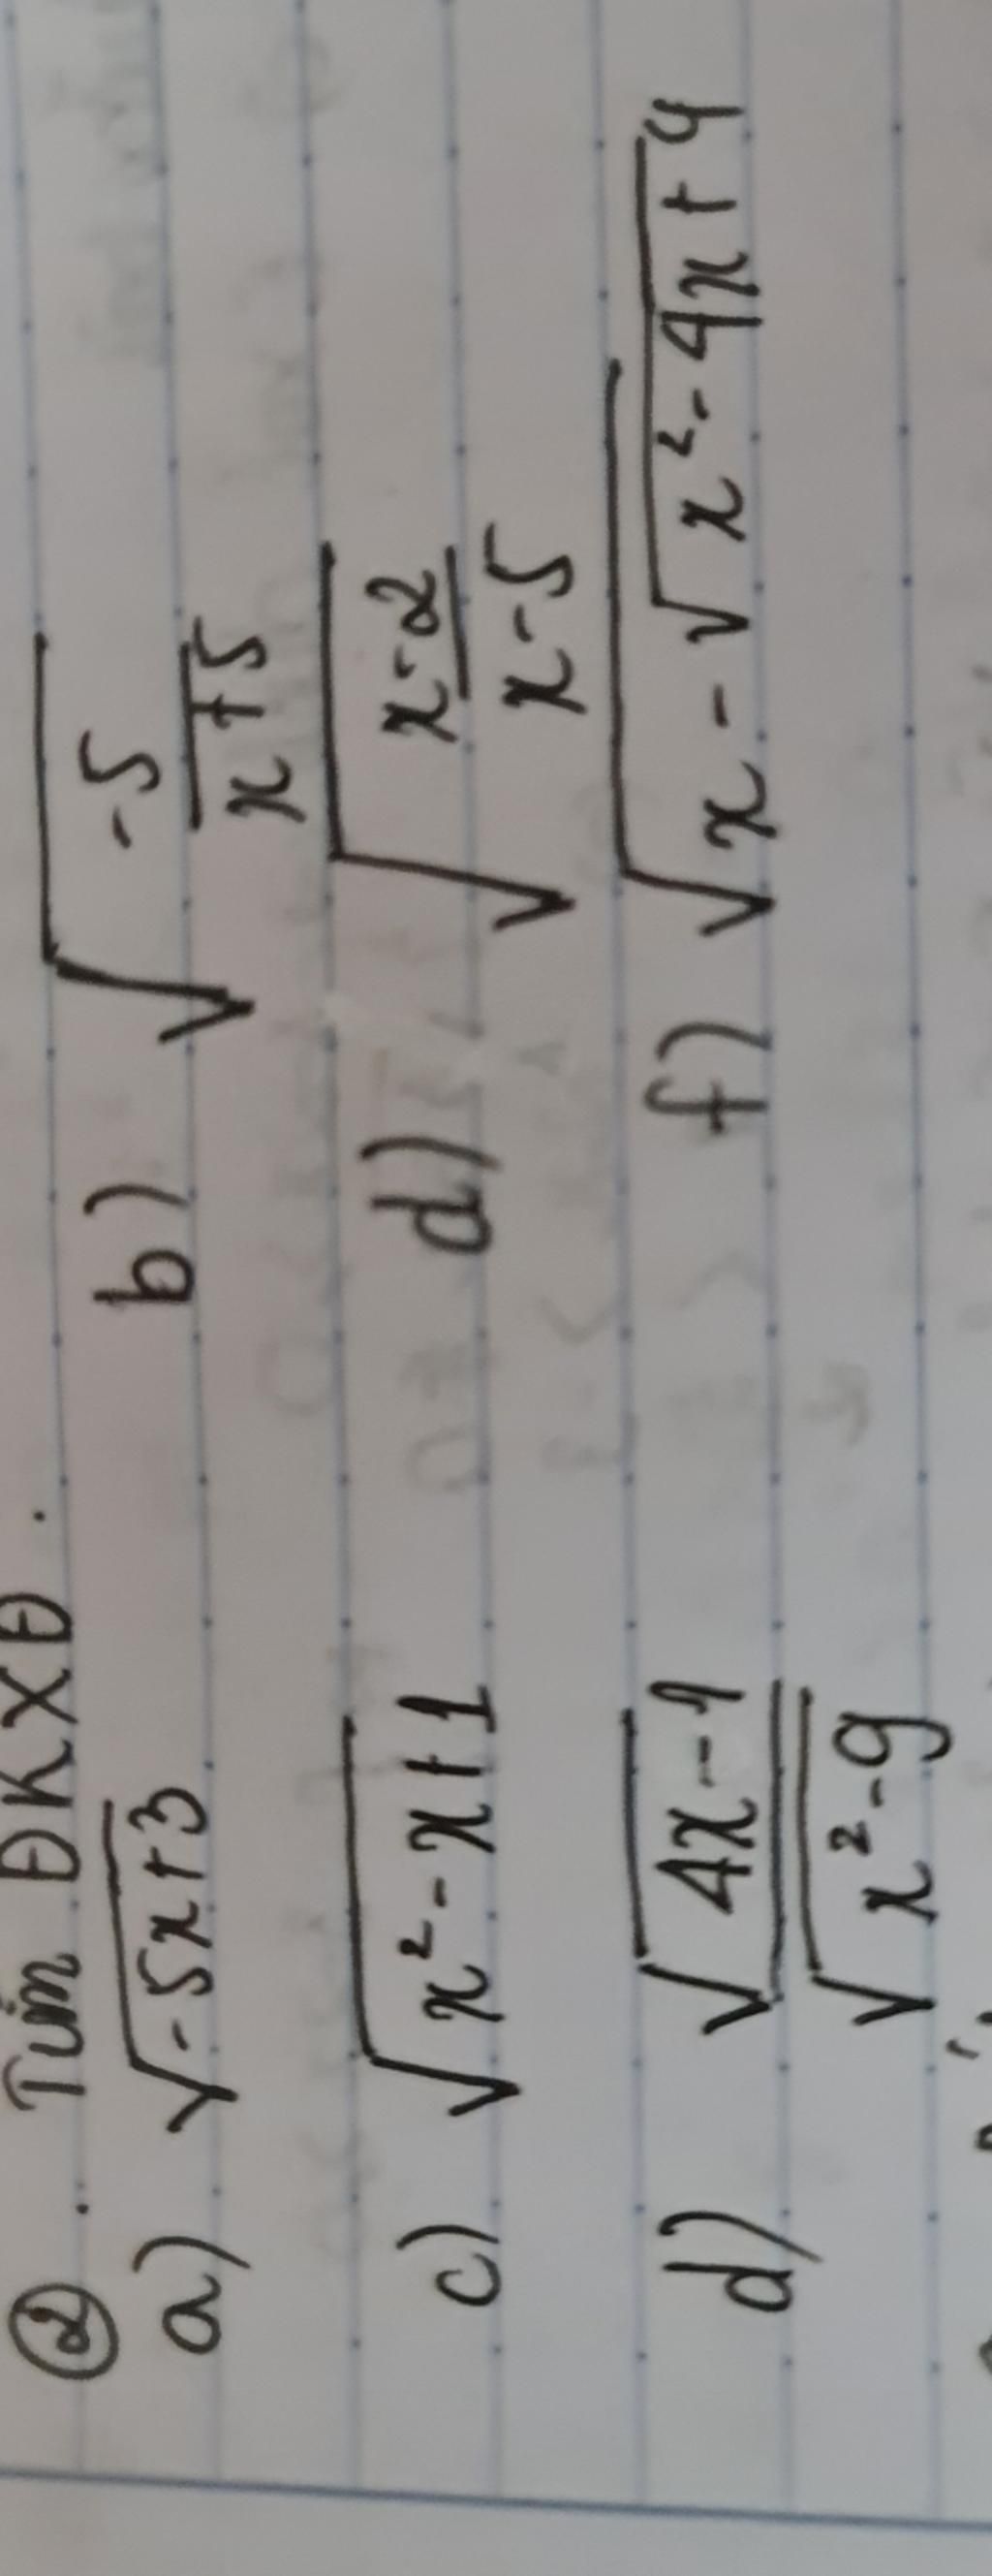 ② Tìm ĐKXĐ.
a) √(-5x+3) b) √(-5/(x+5))
c) √(x²-x+1) d) √((x-2)/(x-5))
d) √(4x-1)/√(x²-9) f) √(x-√(x²-4x+4))